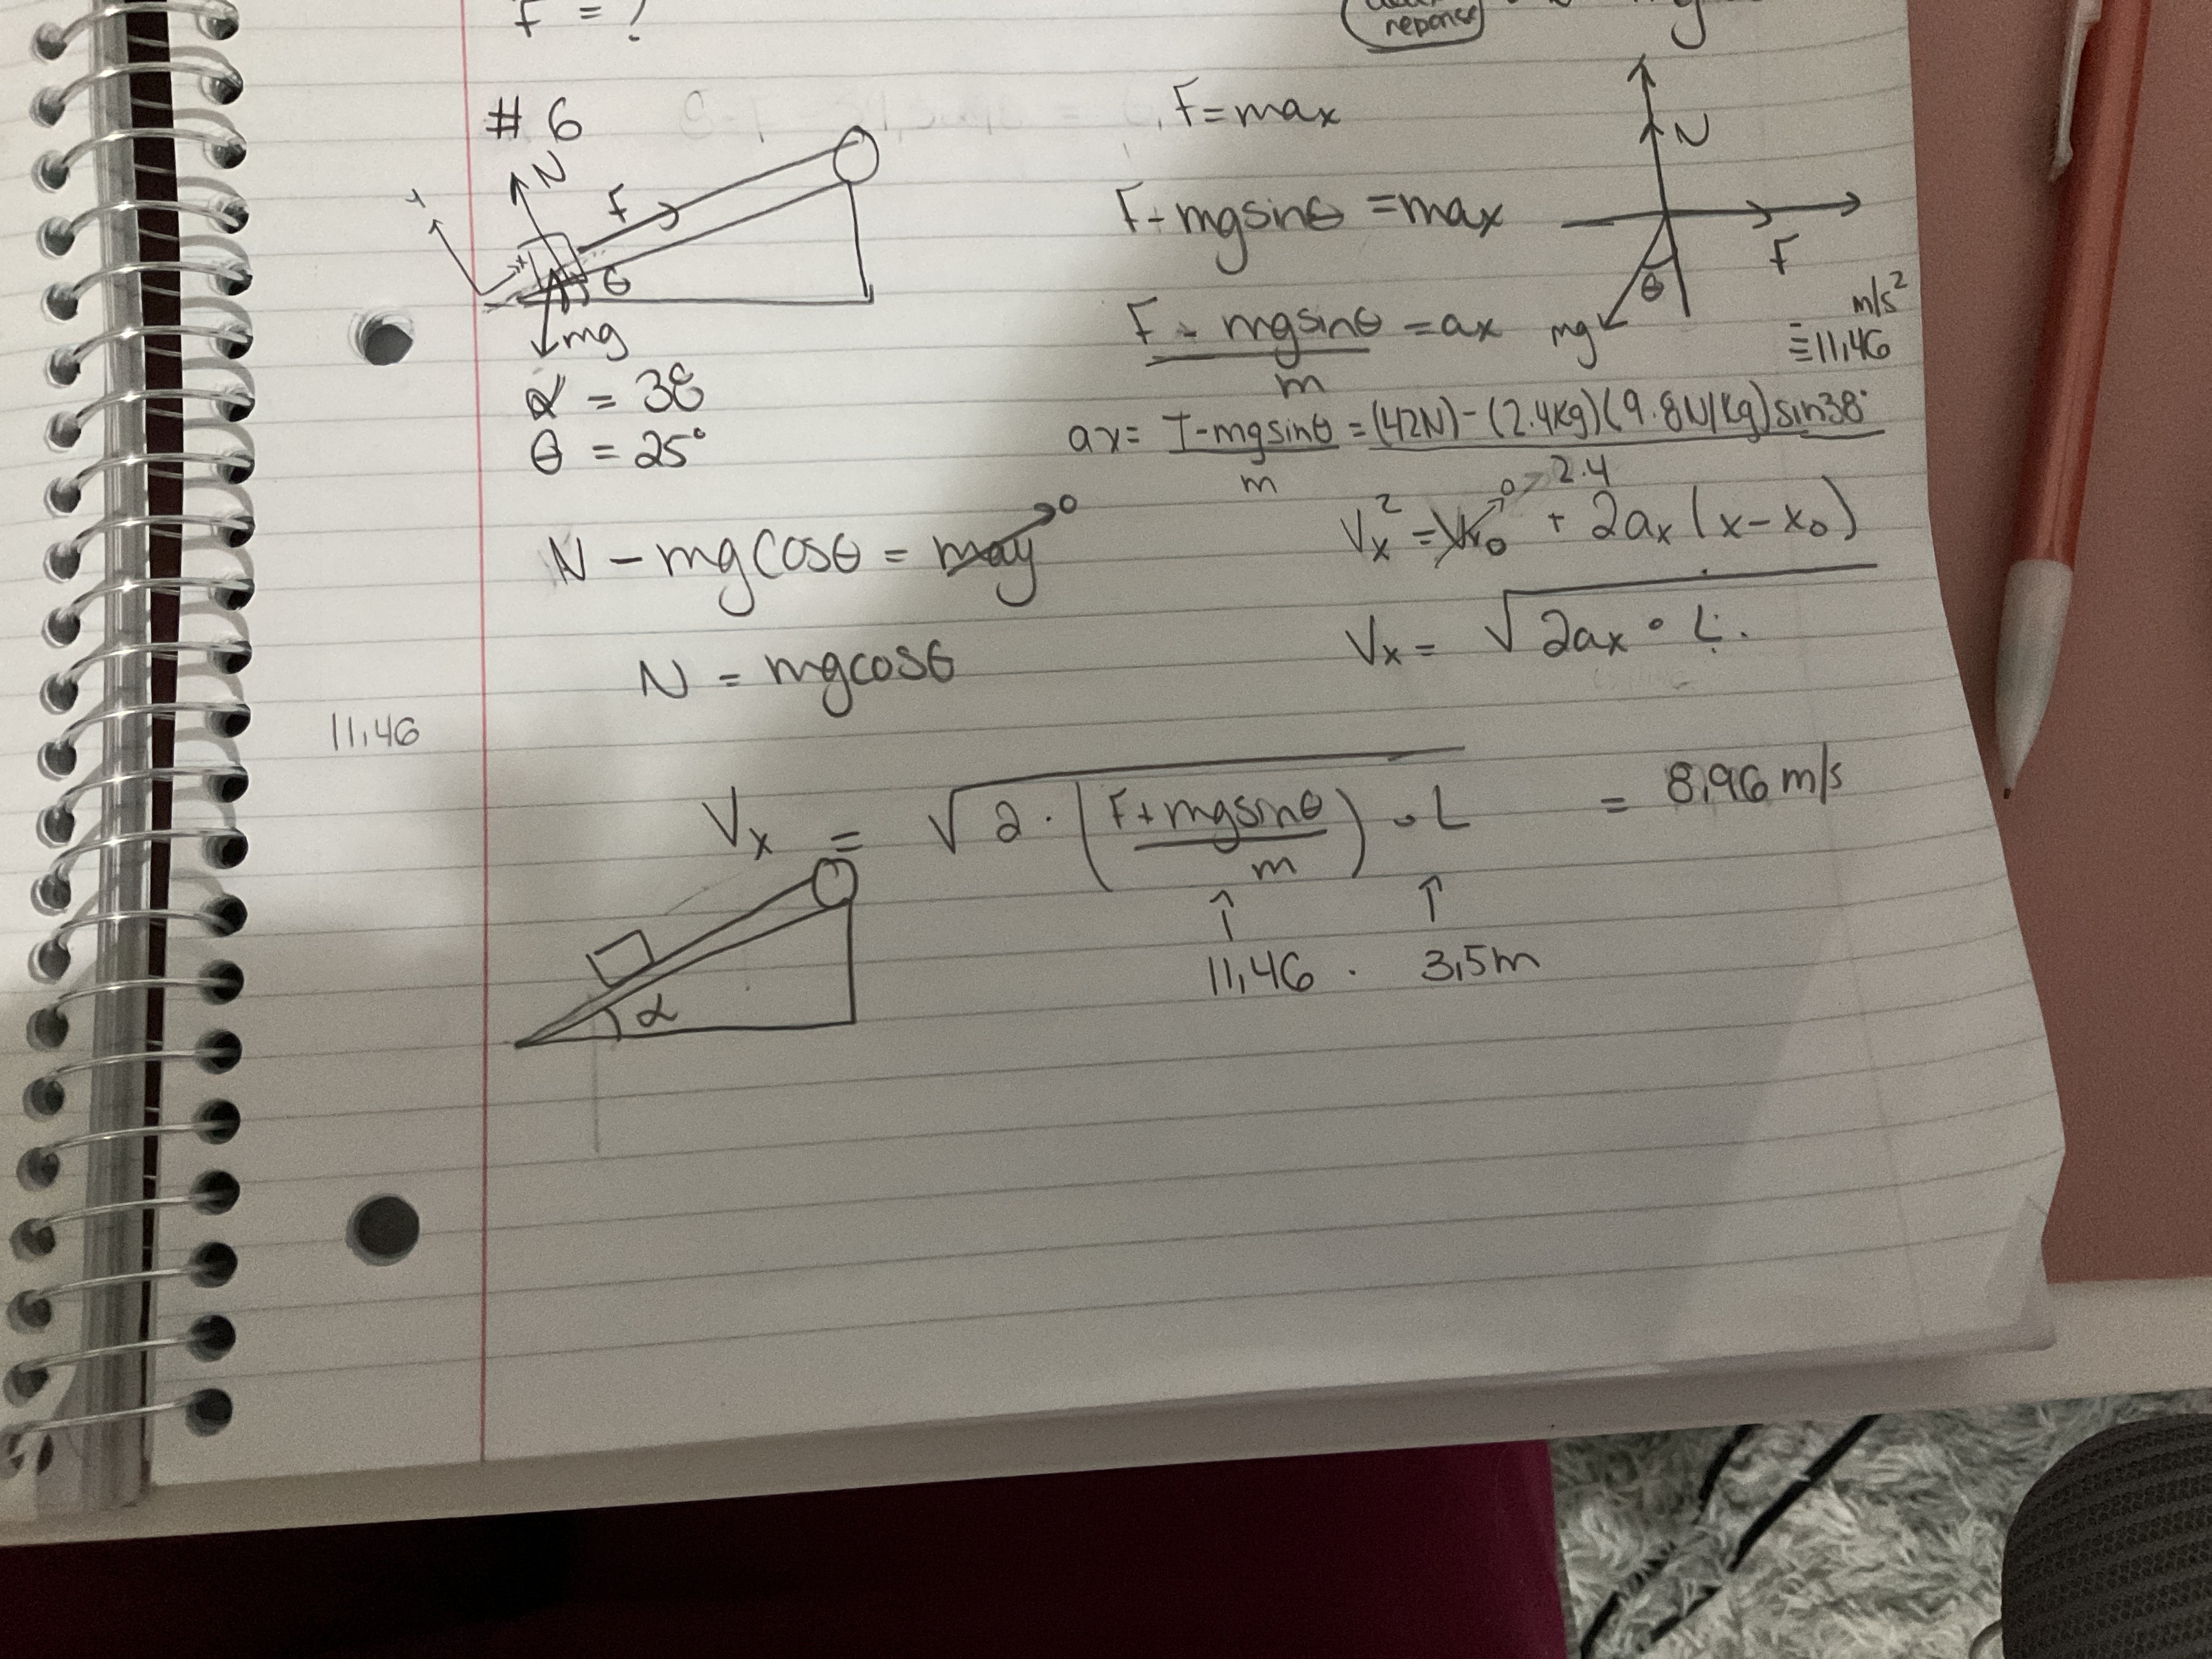 F = ?
reponse
# 6
N
F
Y
x
θ
mg
α = 38
θ = 25°
F = max
F - mgsinθ = max
F - mgsinθ = ax
m
N
F
θ
mg
m/s²
≡ 11,46
ax = T-mgsinθ = (42N) - (2.4kg)(9.8N/kg)sin38°
m
2.4
N - mgcosθ = may → 0
N = mgcosθ
Vx² = Vx0 → 0 + 2ax (x - x0)
Vx = √2ax • L
11,46
Vx = √2 · (F + mgsinθ / m) • L = 8,96 m/s
↑ ↑
11,46 · 3,5m
α